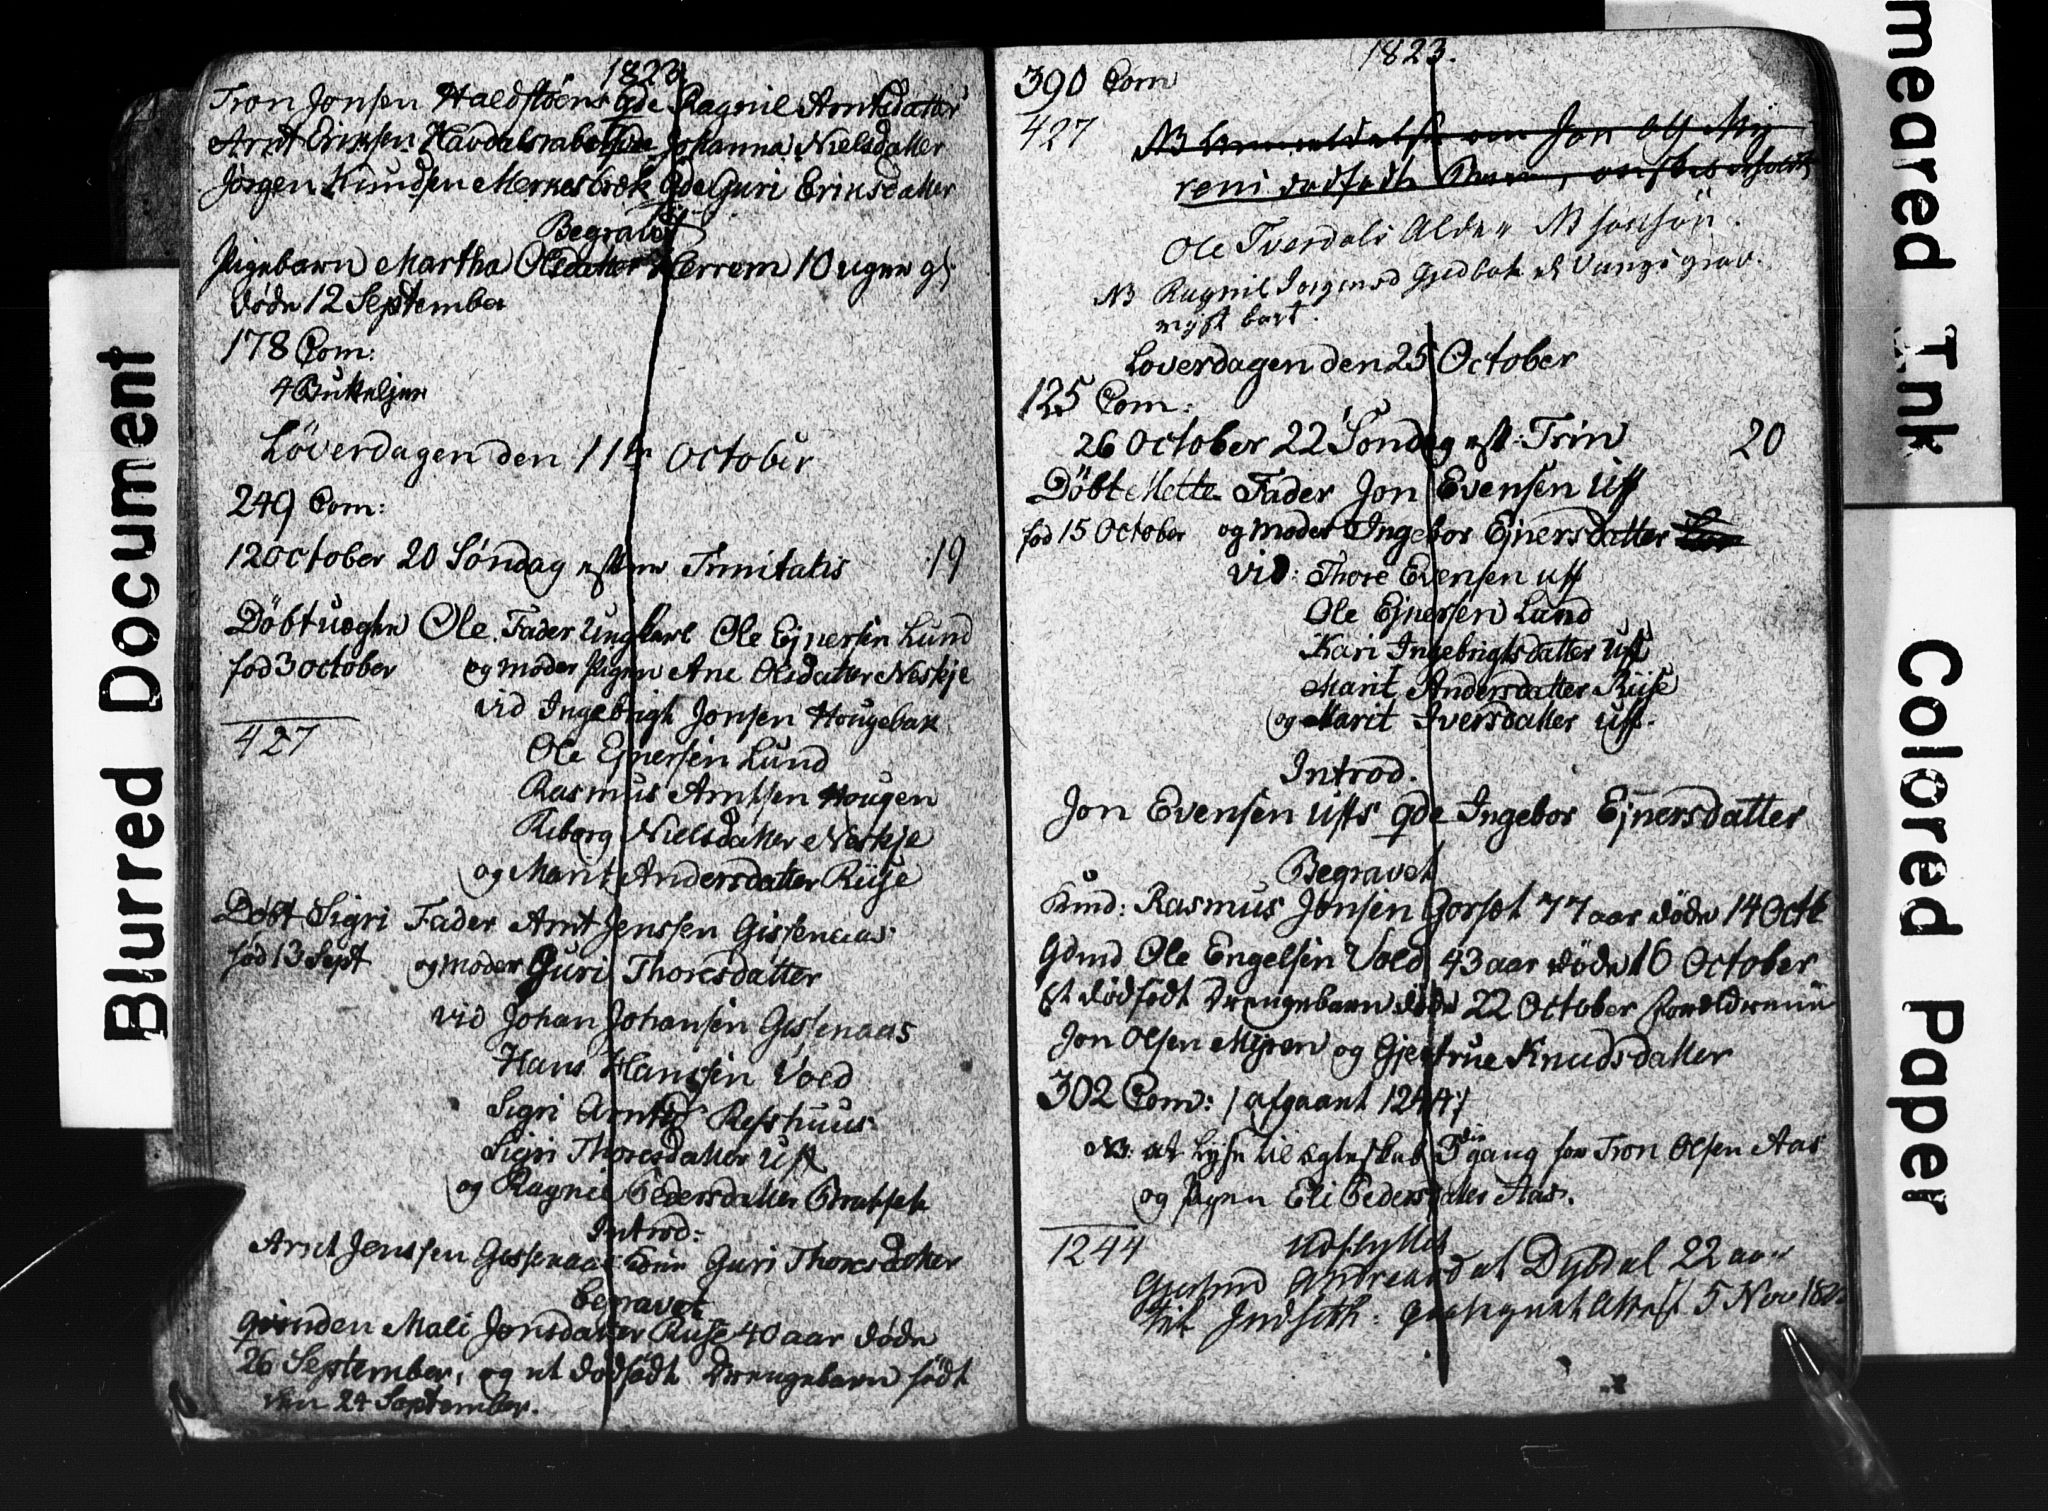 1823
Tron Jonsen Haldstøens Qde Ragnil Arntsdatter
Arnt Eriksen Havdalsrabet Qde Johanna Nielsdatter
Jørgen Knudsen Merkesbæk Qde Guri Eriksdatter
Begravet
Pigebarn Martha Olsdatter Herrem 10 uger gl
døde 12 September
178 Com:
4
Løverdagen den 11te October
249 Com:
12 October 20 Søndag efter Trinitatis 19
Døbt uægte Ole Fader Ungkarl Ole Ejnersen Lund
fød 3 October og Moder Pigen Ane Olsdatter Neskje
vid Ingebrigt Jonsen Hougebak
427
Ole Ejnersen Lund
Rasmus Arntsen Hougen
Kiborg Nielsdatter Neskje
og Marit Andersdatter Riise
Døbt Sigri Fader Arnt Jenssen Gissenaas
fød 13 Sept og Moder Guri Thoresdatter
vid Johan Johansen Gissenaas
Hans Hansen Vold
Sigri Arntsd Refshuus
Sigri Thoresdatter Uft
og Ragnil Pedersdatter Bratset
Introd:
Arnt Jenssen Gissenaas Guri Thoresdatter
Begravet
Qvinden Mali Jonsdatter Riise 40 aar døde
26 September, og et dødfødt Drengebarn født
den 24 September.
1823.
390 Com
427 NB Anmeldelse om Jon Ols My
reni dødfødte Barn,
Ole Tverdals Alder NB
NB Ragnil Jorgensd
bort.
Loverdagen den 25 October
125 Com:
26 October 22 Søndag eft: Trin 20
Døbt Mette Fader Jon Evensen Uft
fød 15 October og Moder Ingebor Ejnersdatter
vid: Thore Evensen Uft
Ole Ejnersen Lund
Kari Ingebrigtsdatter Uft
Marit Andersdatter Riise
og Marit Iversdatter Uft.
Introd.
Jon Evensen Ufts Qde Ingebor Ejnersdatter
Begravet
Rasmus Jonsen Gorset 77 aar døde 14 Octb
Gdmd Ole Engelsen Vold 43 aar døde 16 October
Et dødfødt Drengebarn døde 22 October Forældrene
Jon Olsen Myren og Gjertrue Knudsdatter
302 Com: / afgaaet 1244 /
NB: at lyse til Ægteskab 3die gang for Tron Olsen Aas
og Pigen Eli Pedersdatter Aas.
1244 Udflyttet
Andreasd at Dybdal 22 aar
til Indseth: Attest 5 Nov
Blurred Document
meared Ink
Colored Paper